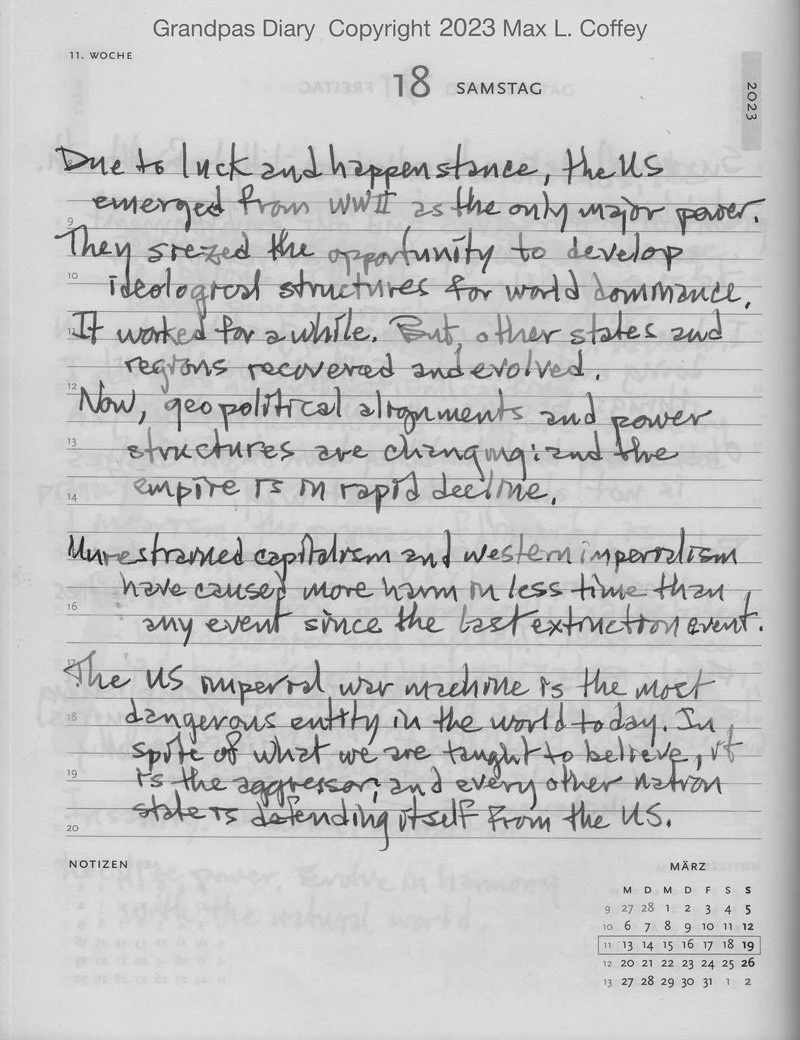 Grandpas Diary Copyright 2023 Max L. Coffey
11. WOCHE
18 SAMSTAG
2023
Due to luck and happenstance, the US
emerged from WWII as the only major power.
9
They siezed the opportunity to develop
10
ideological structures for world dominance.
11
It worked for a while. But, other states and
regions recovered and evolved.
12
Now, geopolitical alignments and power
13
structures are changing: and the
empire is in rapid decline.
14
Unrestrained capitalism and western imperialism
have caused more harm in less time than
16
any event since the last extinction event.
17
The US imperial war machine is the most
18
dangerous entity in the world today. In
spite of what we are taught to believe, it
19
is the aggressor; and every other nation
state is defending itself from the US.
20
NOTIZEN
MÄRZ
M D M D F S S
9 27 28 1 2 3 4 5
10 6 7 8 9 10 11 12
11 13 14 15 16 17 18 19
12 20 21 22 23 24 25 26
13 27 28 29 30 31 1 2